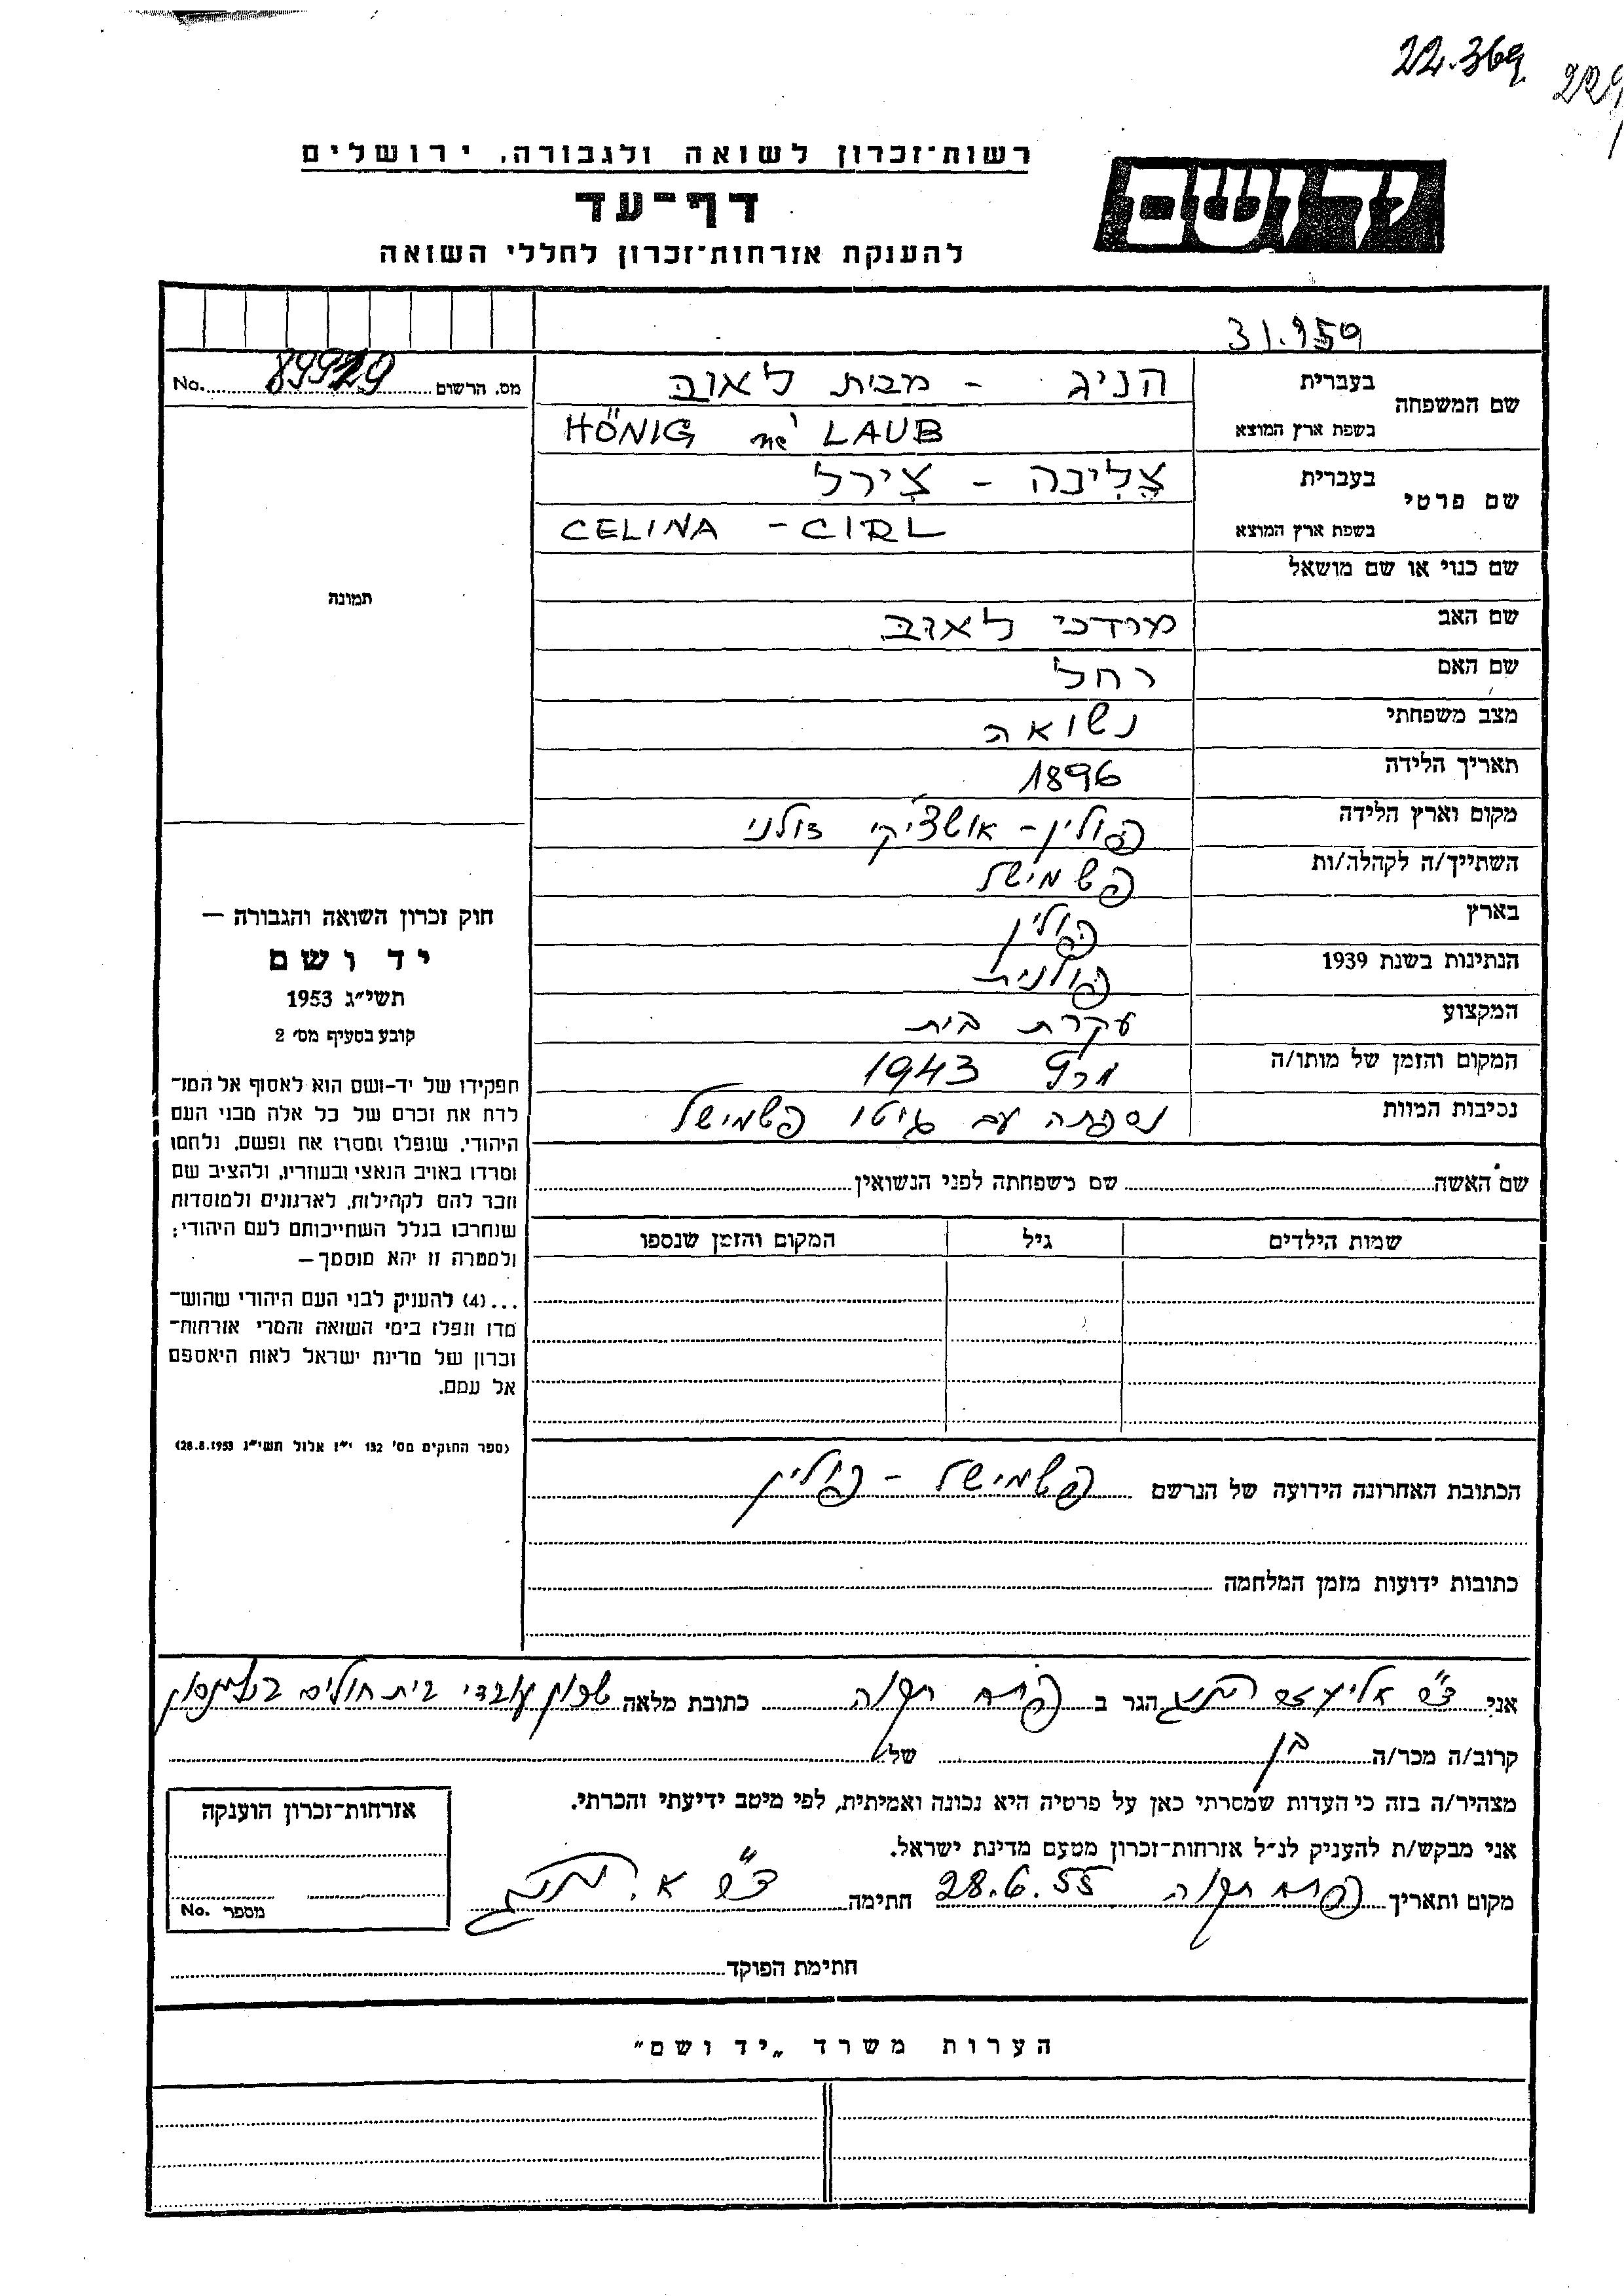 22.369
229
יד ושם
רשות־זכרון לשואה ולגבורה, ירושלים
דף־עד
להענקת אזרחות־זכרון לחללי השואה
31.959
מס. הרשום No. 89929
שם המשפחה
בעברית הניג - מבית לאוב
בשפת ארץ המוצא HÖNIG né LAUB
שם פרטי
בעברית צלינה - צירל
בשפת ארץ המוצא CELINA - CIRL
שם כנוי או שם מושאל
שם האב מרדכי לאוב
שם האם רחל
מצב משפחתי נשואה
תאריך הלידה 1896
מקום וארץ הלידה פולין - אושציקי דולני
השתייך/ה לקהלה/ות פשמישל
בארץ פולין
הנתינות בשנת 1939 פולנית
המקצוע עקרת בית
המקום והזמן של מותו/ה 1943
נסיבות המוות נספתה עם גיטו פשמישל
שם האשה שם משפחתה לפני הנשואין
שמות הילדים גיל המקום והזמן שנספו
הכתובת האחרונה הידועה של הנרשם פשמישל - פולין
כתובות ידועות מזמן המלחמה
תמונה
חוק זכרון השואה והגבורה —
יד ושם
תשי״ג 1953
קובע בסעיף מס׳ 2
תפקידו של יד-ושם הוא לאסוף אל המו־
לדת את זכרם של כל אלה מבני העם
היהודי, שנפלו ומסרו את נפשם, נלחמו
ומרדו באויב הנאצי ובעוזריו, ולהציב שם
וזכר להם לקהילות, לארגונים ולמוסדות
שנחרבו בגלל השתייכותם לעם היהודי;
ולמטרה זו יהא מוסמך —
...(4) להעניק לבני העם היהודי שהוש־
מדו ונפלו בימי השואה והמרי אזרחות־
זכרון של מדינת ישראל לאות היאספם
אל עמם.
(ספר החוקים מס׳ 132 י״ז אלול תשי״ג 28.8.1953)
אני ד״ר אליעזר הניג הגר ב פתח תקוה כתובת מלאה שכון עובדי בית חולים בילינסון
קרוב/ה מכר/ה בן של
מצהיר/ה בזה כי העדות שמסרתי כאן על פרטיה היא נכונה ואמיתית, לפי מיטב ידיעתי והכרתי.
אני מבקש/ת להעניק לנ״ל אזרחות־זכרון מטעם מדינת ישראל.
מקום ותאריך פתח תקוה 28.6.55 חתימה ד״ר א. הניג
אזרחות־זכרון הוענקה
מספר No.
חתימת הפוקד
הערות משרד „יד ושם״